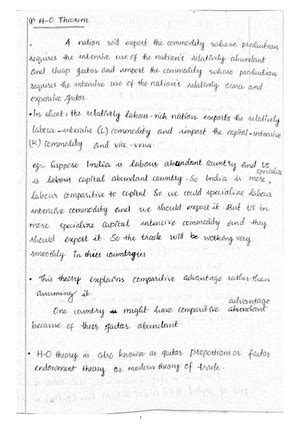 (1) H-O Theorem
• A nation will export the commodity whose production
requires the intensive use of the nation's relatively abundant
and cheap factor and import the commodity whose production
requires the intensive use of the nation's relatively scarce and
expensive factor.
• In short, the relatively labour-rich nation exports the relatively
labour-intensive (L) commodity and import the capital-intensive
(K) commodity and vice-versa.
eg:- Suppose India is labour abundent country and US
is labour capital abundant country. So India is more specialize
labour comparitive to capital. So we could specialize labour
intencive commodity and we should export it. But US in
more specialize capital intencive commodity and they
should export it. So the trade will be working very
smoothly in thier countrgies
• This theory explains comparitive advantage rather than
assuming it.
One country might have comparitive abundent advantage
because of their factor abundent
• H-O theory is also known as factor proportions or factor
endowment theory or modern theory of trade.
1